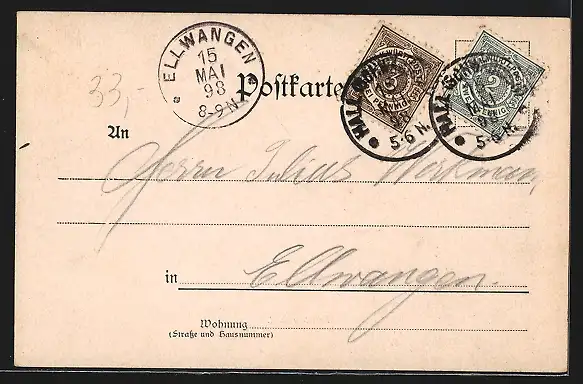 ELLWANGEN
15
MAI
98
8-9 N.
33,-
Postkarte
HALL
5-6 N.
3
HALL
5-6 N.
2
An
Herrn Julius Werkman
in Ellwangen.
Wohnung
(Straße und Hausnummer)